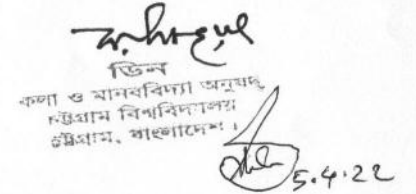 ডিন
কলা ও মানববিদ্যা অনুষদ,
চট্টগ্রাম বিশ্ববিদ্যালয়
চট্টগ্রাম, বাংলাদেশ।
5.4.22